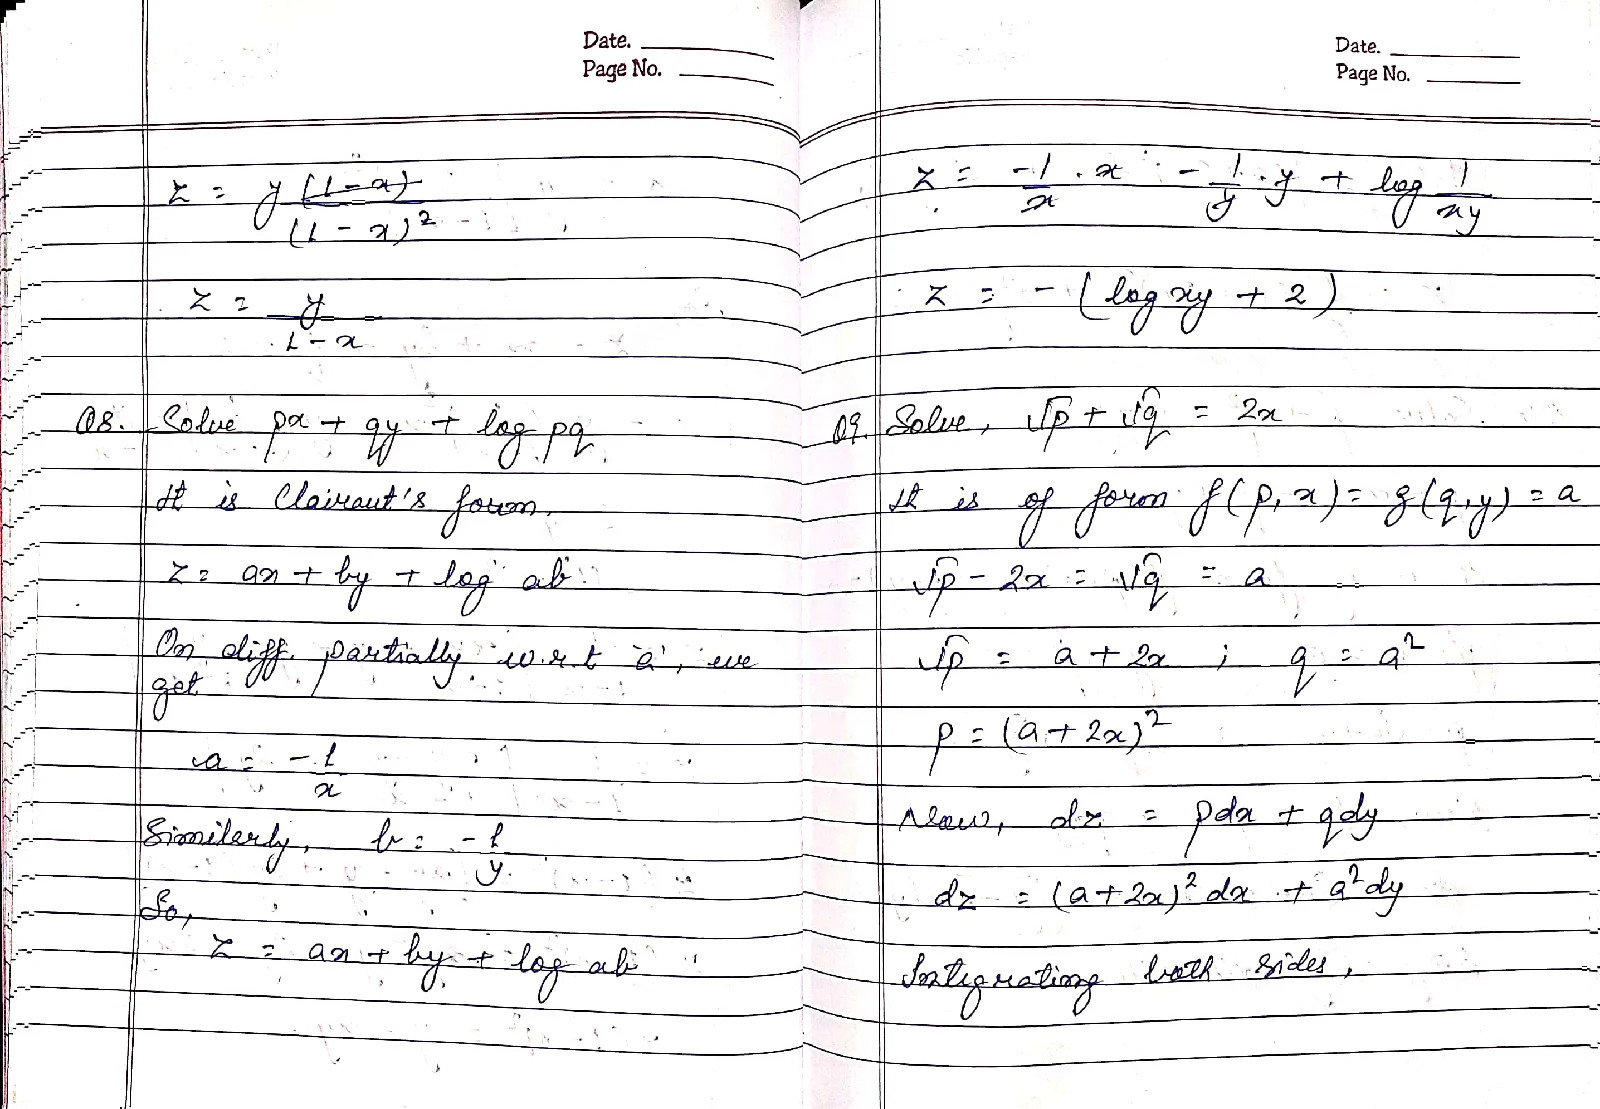 Date.
Page No.
z = y (1-x) / (1-x)²
z = y / 1-x
Q8. Solve px + qy + log pq.
It is Clairaut's form.
z = ax + by + log ab
On diff. partially w.r.t 'a', we
get
a = -1/x
Similerly, b = -1/y.
So,
z = ax + by + log ab
Date.
Page No.
z = -1/x . x - 1/y . y + log 1/xy
z = - (log xy + 2)
Q9. Solve, √p + √q = 2x
It is of form f(p, x) = g(q, y) = a
√p - 2x = √q = a
√p = a + 2x ; q = a²
p = (a + 2x)²
Now, dz = pdx + qdy
dz = (a + 2x)² dx + a² dy
Integrating both sides,